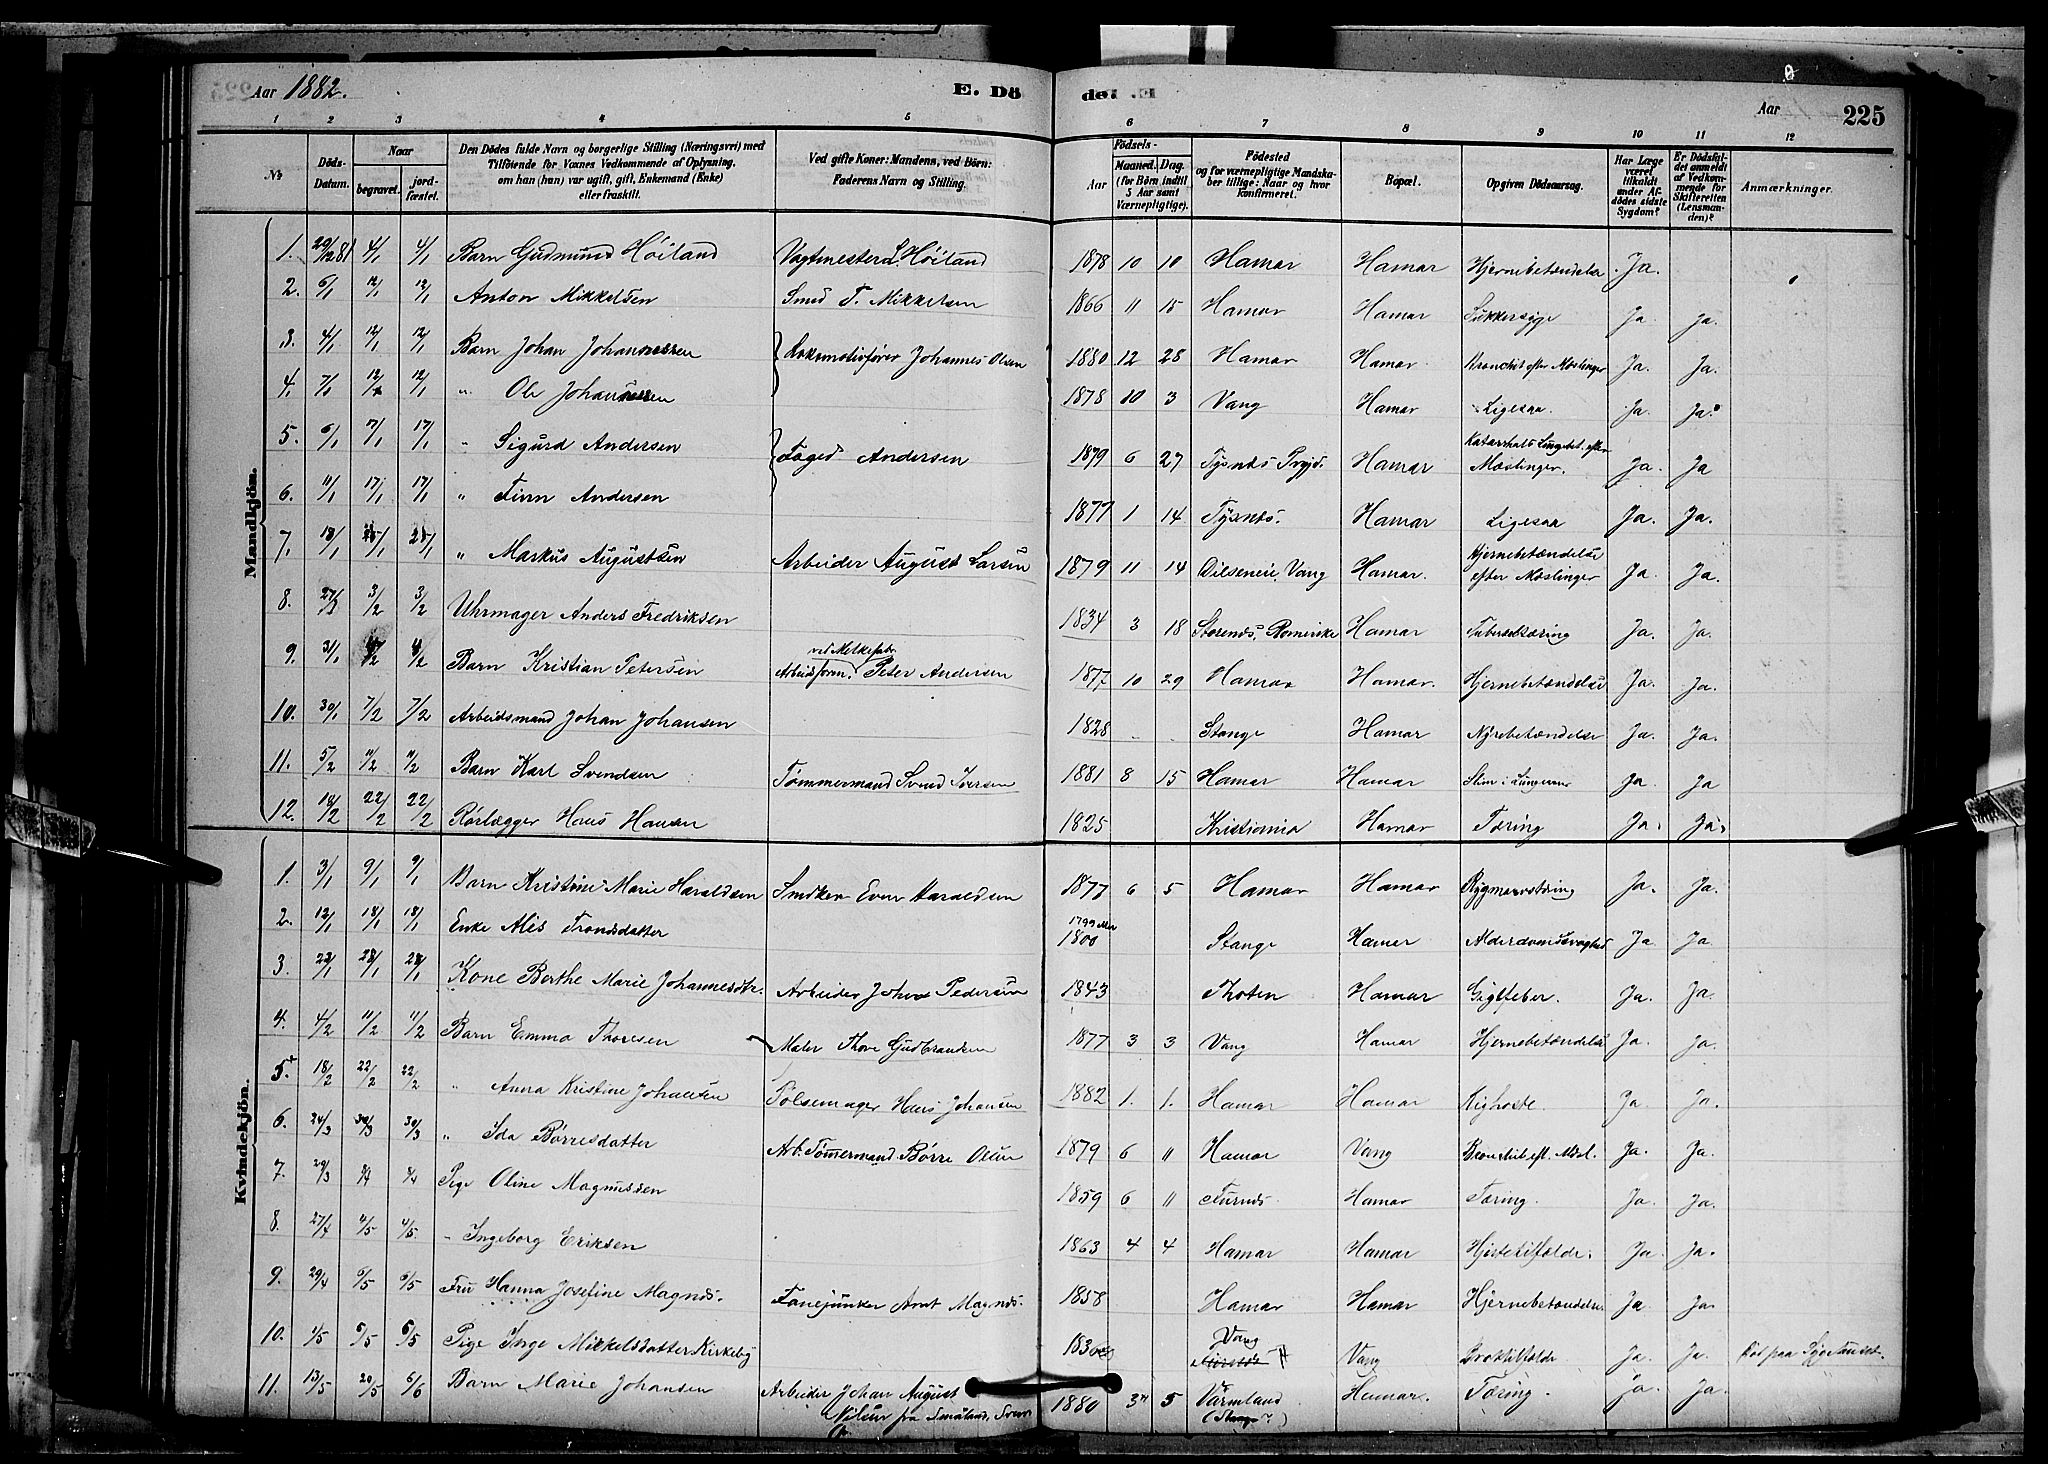 Aar 1882.
E. Dö
de. E.
Aar
225
1 2 3 4 5 6 7 8 9 10 11 12
No
Döds-Datum.
Naar
begravet.
jord-fæstet.
Den Dödes fulde Navn og borgerlige Stilling (Næringsvei) med
Tilföiende for Voxnes Vedkommende af Oplysning,
om han (hun) var ugift, gift, Enkemand (Enke)
eller fraskilt.
Ved gifte Koner: Mandens, ved Börn:
Faderens Navn og Stilling.
Födsels-
Aar
Maaned. Dag.
(for Börn indtil
5 Aar samt
Værnepligtige).
Födested
og for værnepligtige Mandska-
ber tillige: Naar og hvor
konfirmeret.
Bopæl.
Opgiven Dödsaarsag.
Har Læge
været
tilkaldt
under Af-
dödes sidste
Sygdom?
Er Dödsfal-
det anmeldt
af Vedkom-
mende for
Skifteretten
(Lensman-
den)?
Anmærkninger.
Mandkjön.
1. 29/12 81 4/1 4/1 Barn Gudmund Höiland Vagtmester L. Höiland 1878 10 10 Hamar Hamar Hjernebetændelse Ja.
2. 6/1 12/1 12/1 Anton Mikkelsen Smed T. Mikkelsen 1866 11 15 Hamar Hamar Sukkersyge Ja. Ja.
3. 4/1 12/1 12/1 Barn Johan Johannessen Lokomotivfører Johannes Olsen 1880 12 28 Hamar Hamar. Bronchit efter Mæslinger Ja. Ja.
4. 7/1 12/1 12/1 " Ole Johannessen 1878 10 3 Vang Hamar Ligesaa. Ja. Ja.
5. 6/1 17/1 17/1 " Sigurd Andersen Foged Andersen 1879 6 27 Tysnes Prgjd. Hamar Katarrhalsk Lungebet. efter Mæslinger. Ja. Ja
6. 11/1 17/1 17/1 " Finn Andersen 1877 1 14 Tysnes. Hamar Ligesaa Ja. Ja.
7. 18/1 25/1 25/1 " Markus Augustsen Arbeider August Larsen 1879 11 14 Vang Hamar. Hjernebetændelse efter Mæslinger Ja. Ja.
8. 3/2 3/2 Uhrmager Anders Fredriksen 1834 3 18 Romerike Hamar Tuberkeltæring Ja. Ja.
9. 31/1 4/2 Barn Kristian Petersen Arbeidsform. ved Melkefab. Peter Andersen 1877 10 29 Hamar Hamar. Hjernebetændelse Ja. Ja.
10. 30/1 7/2 7/2 Arbeidsmand Johan Johansen 1828 " " Stange Hamar Nyrebetændelse Ja. Ja.
11. 5/2 11/2 11/2 Barn Karl Svendsen Tømmermand Svend Iversen 1881 8 15 Hamar Hamar Slim i Lungerne Ja. Ja
12. 18/2 22/2 22/2 Rørlægger Hans Hansen 1825 Kristiania Hamar Tæring Ja. Ja.
Kvindekjön.
1. 3/1 9/1 9/1 Barn Kristine Marie Haraldsen Snedker Even Haraldsen 1877 6 5 Hamar Hamar Rygmarvstæring Ja. Ja.
2. 12/1 18/1 18/1 Enke Alis Trondsdatter 1799 eller 1800 Stange Hamar Alderdomssvaghed Ja Ja
3. 22/1 28/1 28/1 Kone Berthe Marie Johannesdtr. Arbeider Johan Pedersen 1843 Thoten Hamar Gigtfeber. Ja. Ja.
4. 4/2 11/2 11/2 Barn Emma Thoresen Maler Thore Gudbrandsen 1877 3 3 Vang Hamar Hjernebetændelse Ja. Ja.
5. 18/2 22/2 22/2 " Anna Kristine Johansen Pølsemager Hans Johansen 1882 1. 1. Hamar Hamar Kighoste. Ja. Ja.
6. 24/3 30/3 30/3 " Ida Børresdatter Arb. Tømmermand Børre Olsen 1879 6 11 Hamar Vang Bronchit eft. Mæsl. Ja. Ja.
7. 29/3 Pige Oline Magnussen 1859 6 11 Furnes Hamar Tæring. Ja. Ja.
8. 27/4 4/5 4/5 " Ingeborg Eriksen 1863 4 4 Hamar Hamar Hjertetilfælde. Ja Ja.
9. 29/4 6/5 6/5 Fru Hanna Josefine Magnus. Fanejunker Arnt Magnus. 1858 Hamar Hamar Hjernebetændelse Ja. Ja.
10. 1/5 6/5 6/5 Pige Inge Mikkelsdatter Kirkeby 1836 Vang Vang Broktilfælde Ja. Ja. Død paa Sygehuset.
11. 13/5 20/5 6/6 Barn Marie Johansen Arbeider Johan August Nilsen fra Småland, Sverr. 1880 3 5 Värmland (Stange?) Hamar. Tæring. Ja. Ja.